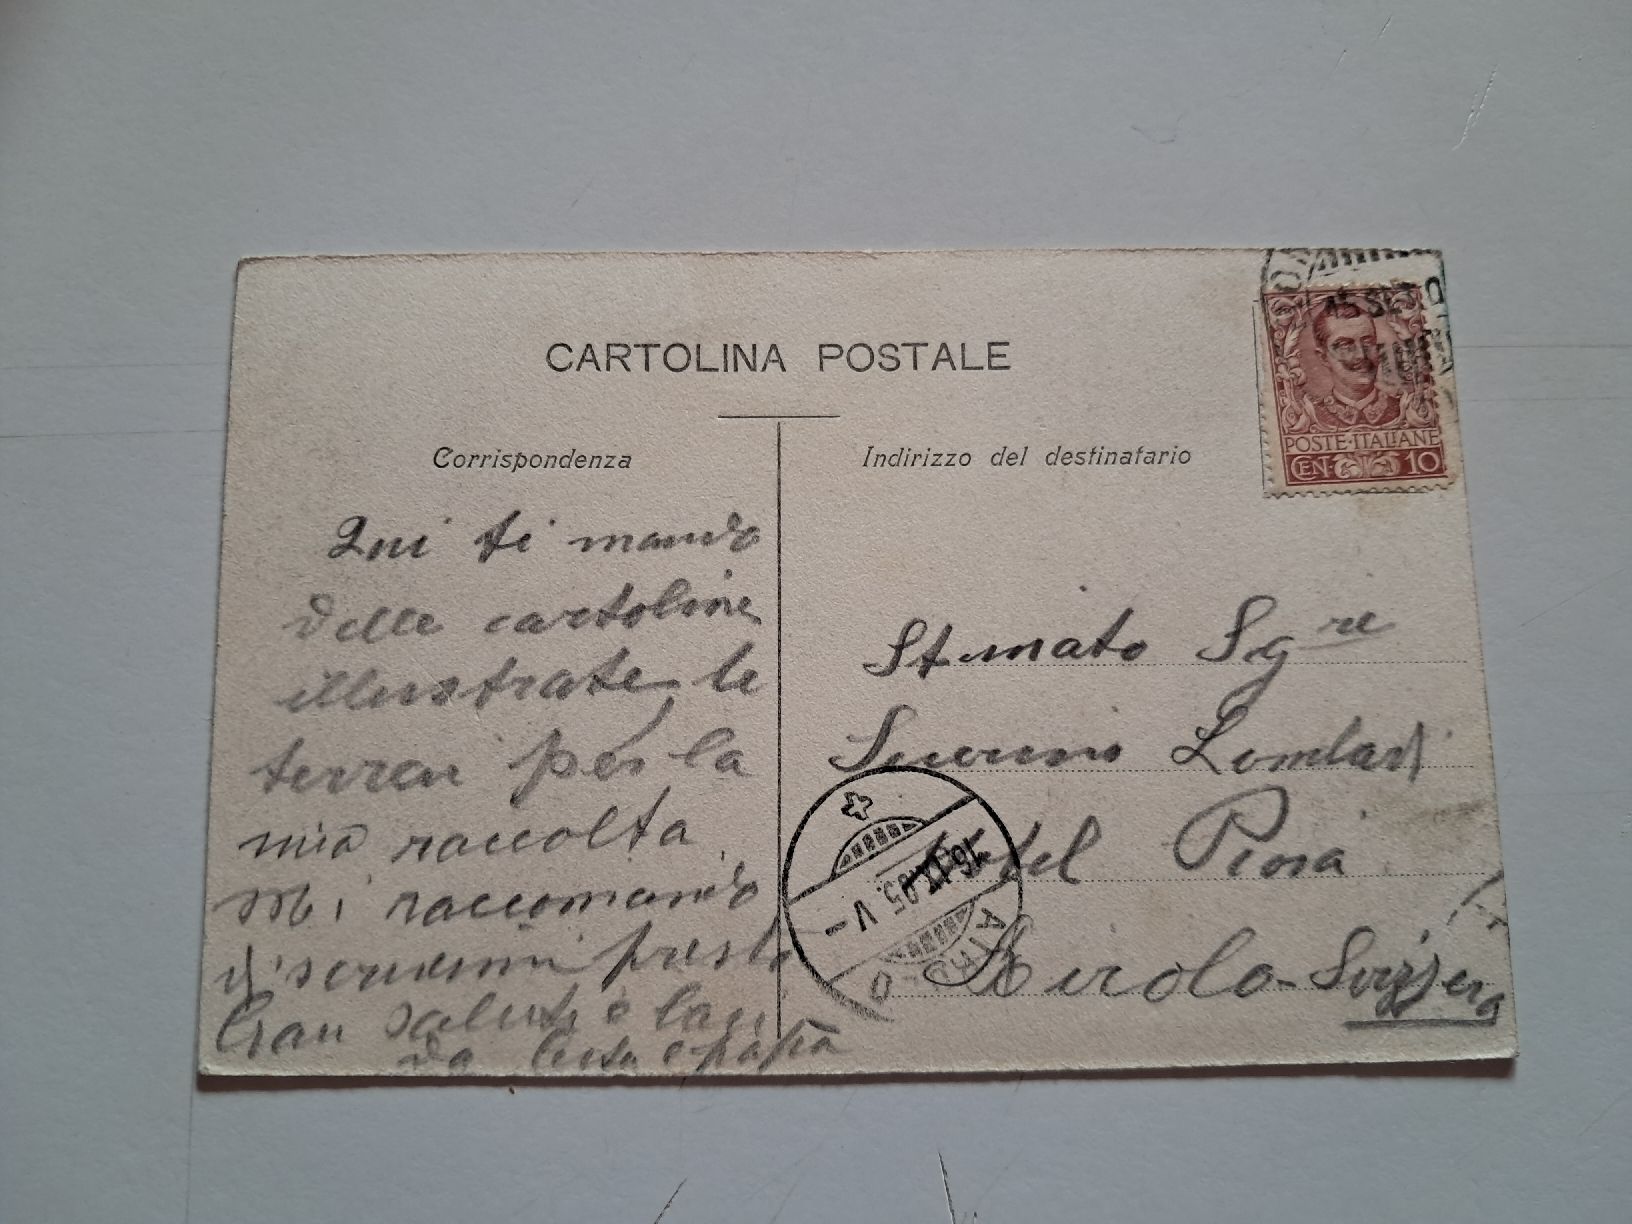 CARTOLINA POSTALE
Corrispondenza
Qui ti mando
delle cartoline
illustrate le
terrai per la
mia raccolta
Mi raccomando
di scrivermi presto
Gran saluti e baci
da e papà
Indirizzo del destinatario
Stimato Sgre
Lombardi
Hotel Piora
Airolo - Svizzera
15 SET 0
POSTE·ITALIANE
CEN· 10
16. .05. V–